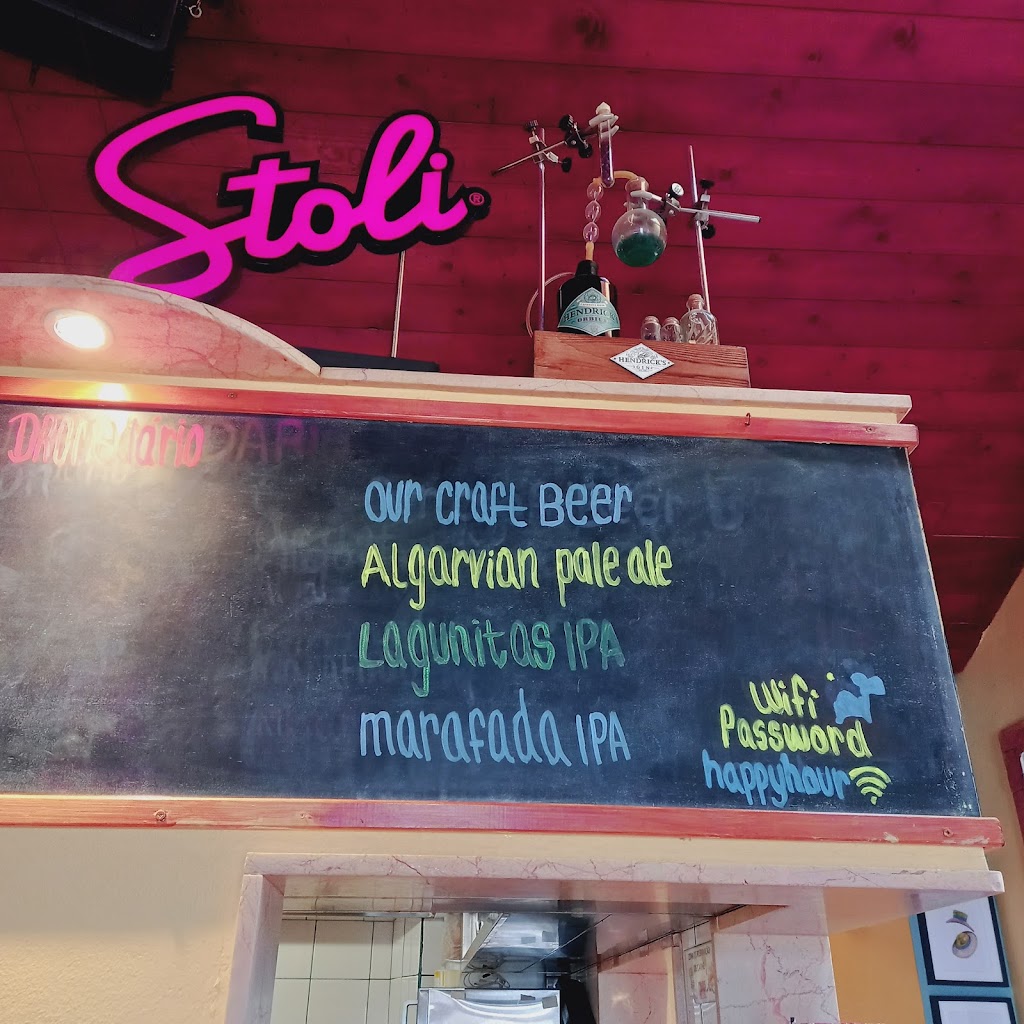 Stoli®
HENDRICK'S
HENDRICK'S
GIN
Dromedário
our craft Beer
Algarvian pale ale
Lagunitas IPA
marafada IPA
Wifi
Password
happyhour